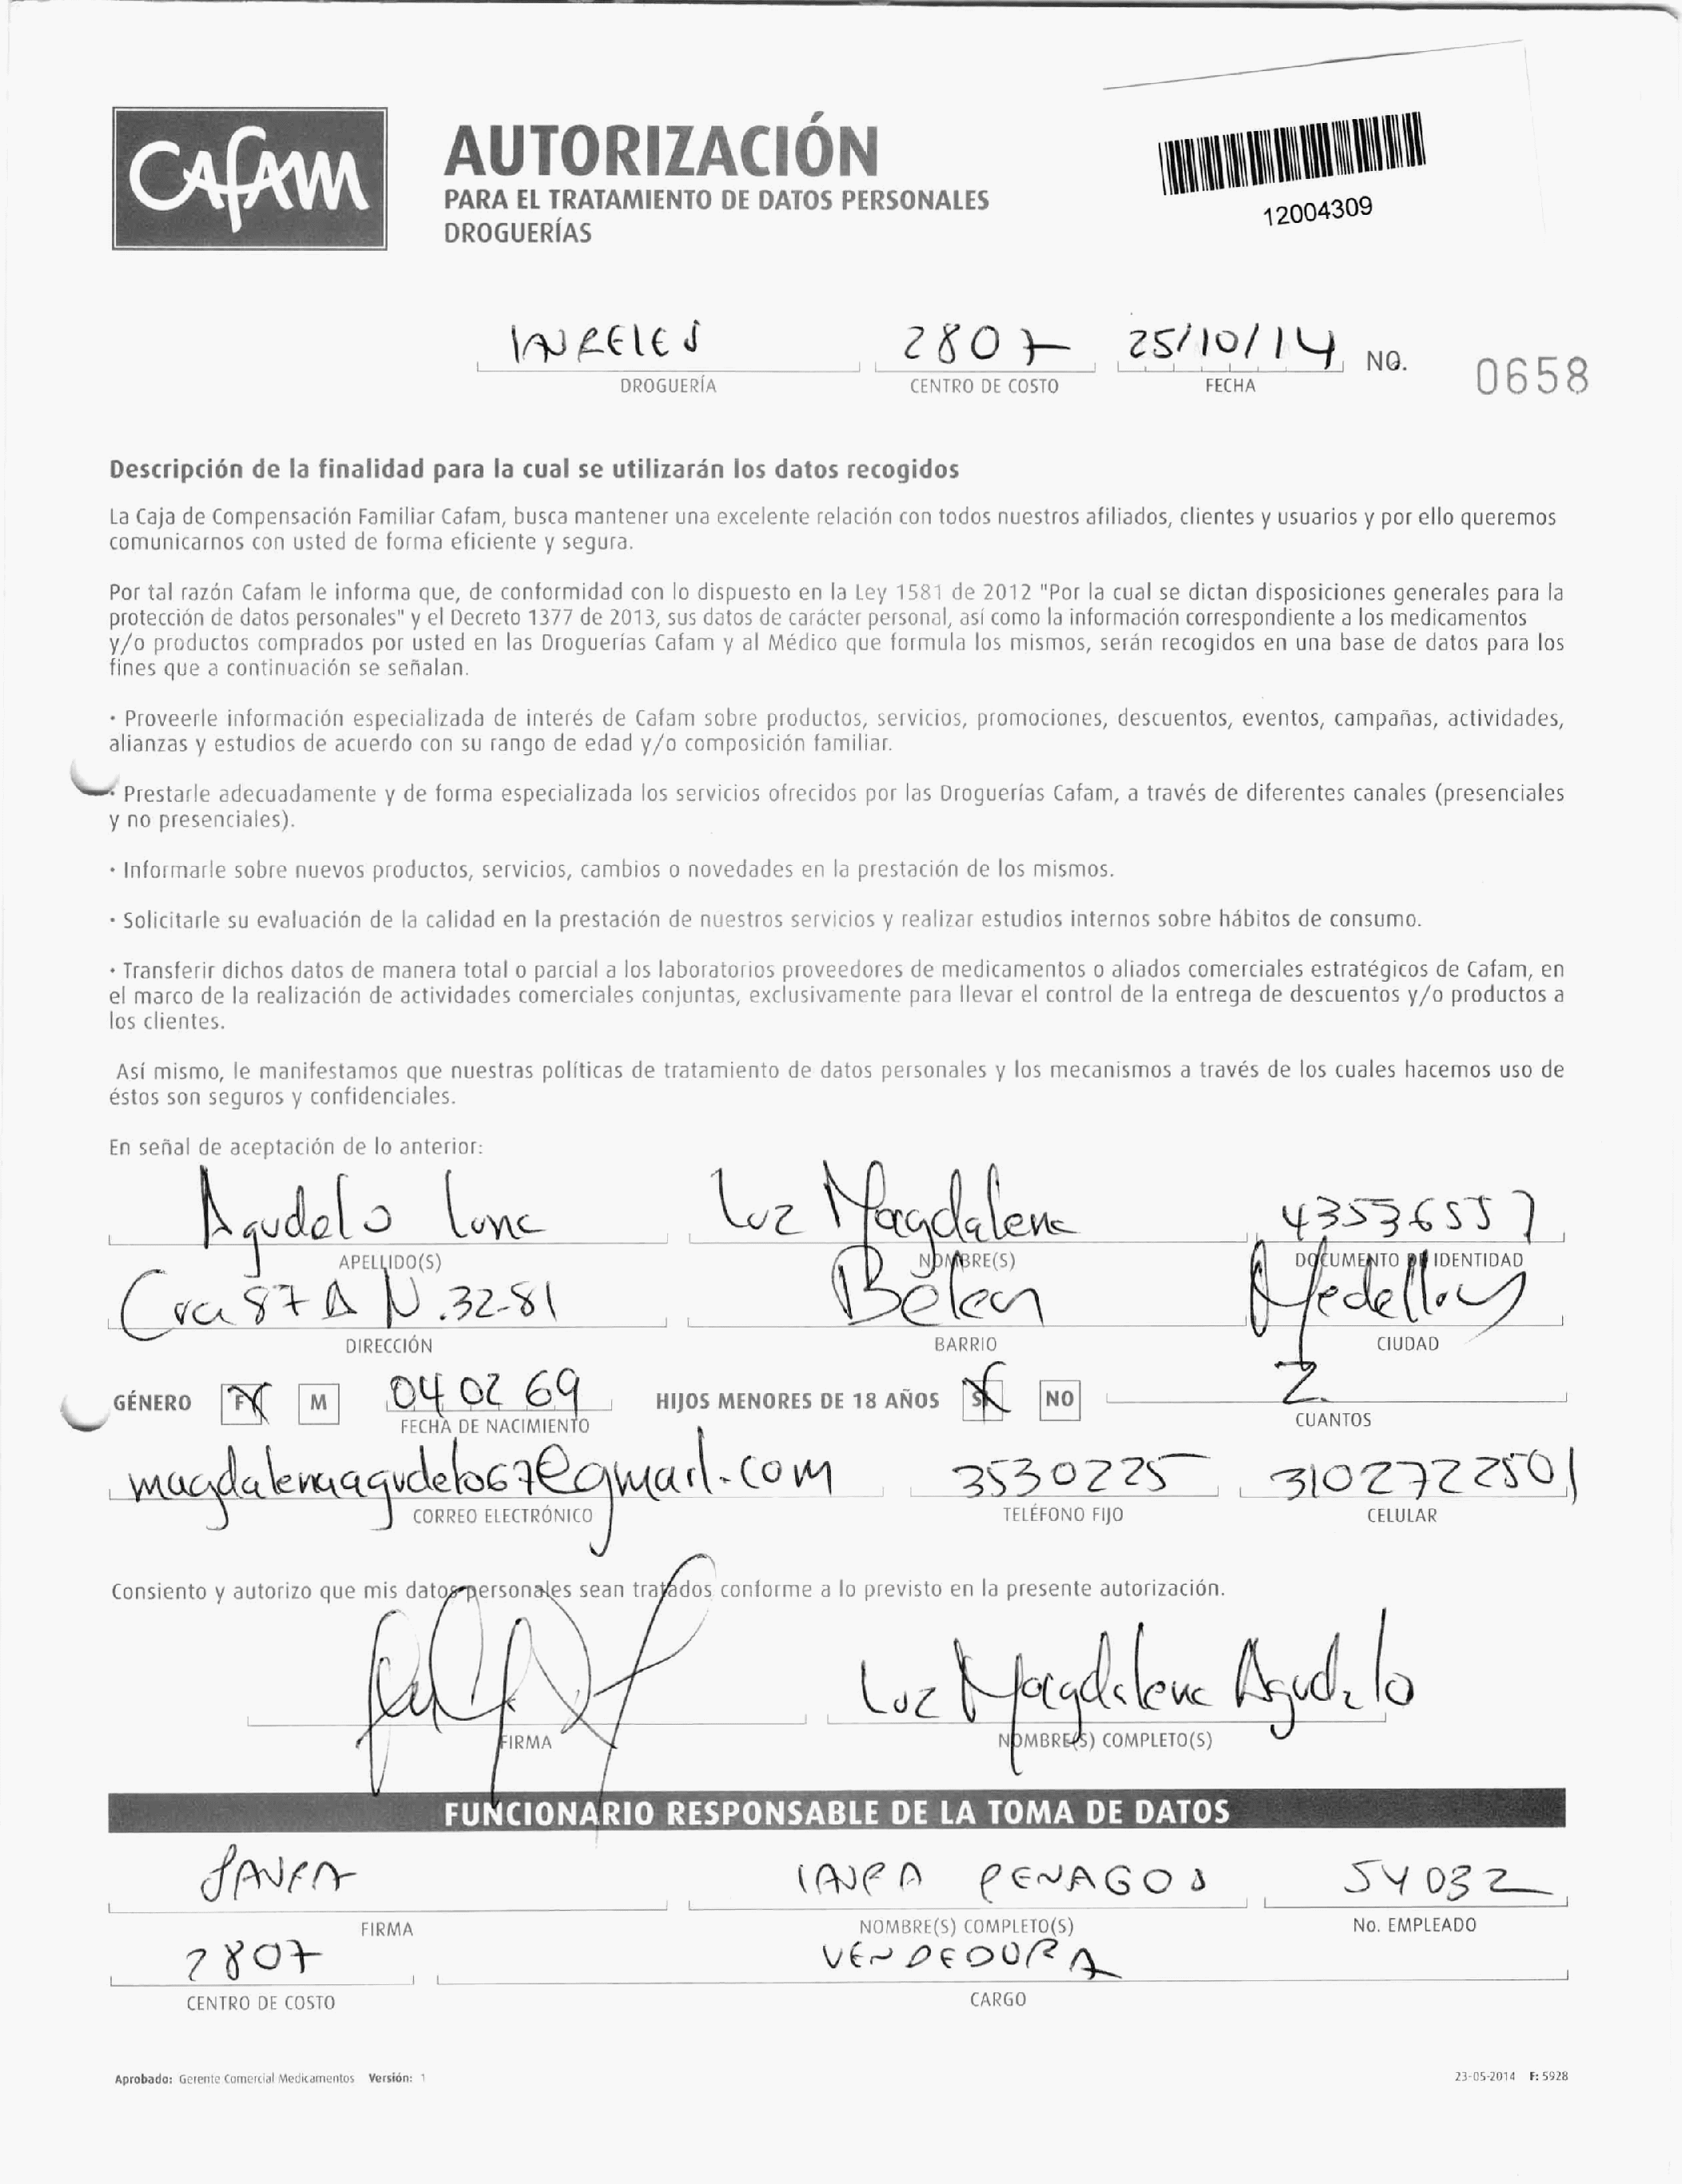 CAFAM
AUTORIZACIÓN
PARA EL TRATAMIENTO DE DATOS PERSONALES
DROGUERÍAS
12004309
2807 25/10/14 NO. 0658
DROGUERÍA CENTRO DE COSTO FECHA
Descripción de la finalidad para la cual se utilizarán los datos recogidos
La Caja de Compensación Familiar Cafam, busca mantener una excelente relación con todos nuestros afiliados, clientes y usuarios y por ello queremos
comunicarnos con usted de forma eficiente y segura.
Por tal razón Cafam le informa que, de conformidad con lo dispuesto en la Ley 1581 de 2012 "Por la cual se dictan disposiciones generales para la
protección de datos personales" y el Decreto 1377 de 2013, sus datos de carácter personal, así como la información correspondiente a los medicamentos
y/o productos comprados por usted en las Droguerías Cafam y al Médico que formula los mismos, serán recogidos en una base de datos para los
fines que a continuación se señalan.
· Proveerle información especializada de interés de Cafam sobre productos, servicios, promociones, descuentos, eventos, campañas, actividades,
alianzas y estudios de acuerdo con su rango de edad y/o composición familiar.
· Prestarle adecuadamente y de forma especializada los servicios ofrecidos por las Droguerías Cafam, a través de diferentes canales (presenciales
y no presenciales).
· Informarle sobre nuevos productos, servicios, cambios o novedades en la prestación de los mismos.
· Solicitarle su evaluación de la calidad en la prestación de nuestros servicios y realizar estudios internos sobre hábitos de consumo.
· Transferir dichos datos de manera total o parcial a los laboratorios proveedores de medicamentos o aliados comerciales estratégicos de Cafam, en
el marco de la realización de actividades comerciales conjuntas, exclusivamente para llevar el control de la entrega de descuentos y/o productos a
los clientes.
Así mismo, le manifestamos que nuestras políticas de tratamiento de datos personales y los mecanismos a través de los cuales hacemos uso de
éstos son seguros y confidenciales.
En señal de aceptación de lo anterior:
Agudelo Luna Luz Magdalena 43536557
APELLIDO(S) NOMBRE(S) DOCUMENTO DE IDENTIDAD
Cra 87 A N.32-81 Belen Medellin
DIRECCIÓN BARRIO CIUDAD
GÉNERO F M 04 02 69 HIJOS MENORES DE 18 AÑOS SI NO 2
FECHA DE NACIMIENTO CUANTOS
magdalenaagudelo67@gmail.com 3530225 3102722501
CORREO ELECTRÓNICO TELÉFONO FIJO CELULAR
Consiento y autorizo que mis datos personales sean tratados conforme a lo previsto en la presente autorización.
Luz Magdalena Agudelo
FIRMA NOMBRE(S) COMPLETO(S)
FUNCIONARIO RESPONSABLE DE LA TOMA DE DATOS
PENAGOS 54032
FIRMA NOMBRE(S) COMPLETO(S) No. EMPLEADO
2807 VENDEDORA
CENTRO DE COSTO CARGO
Aprobado: Gerente Comercial Medicamentos Versión: 1 23-05-2014 F: 5928